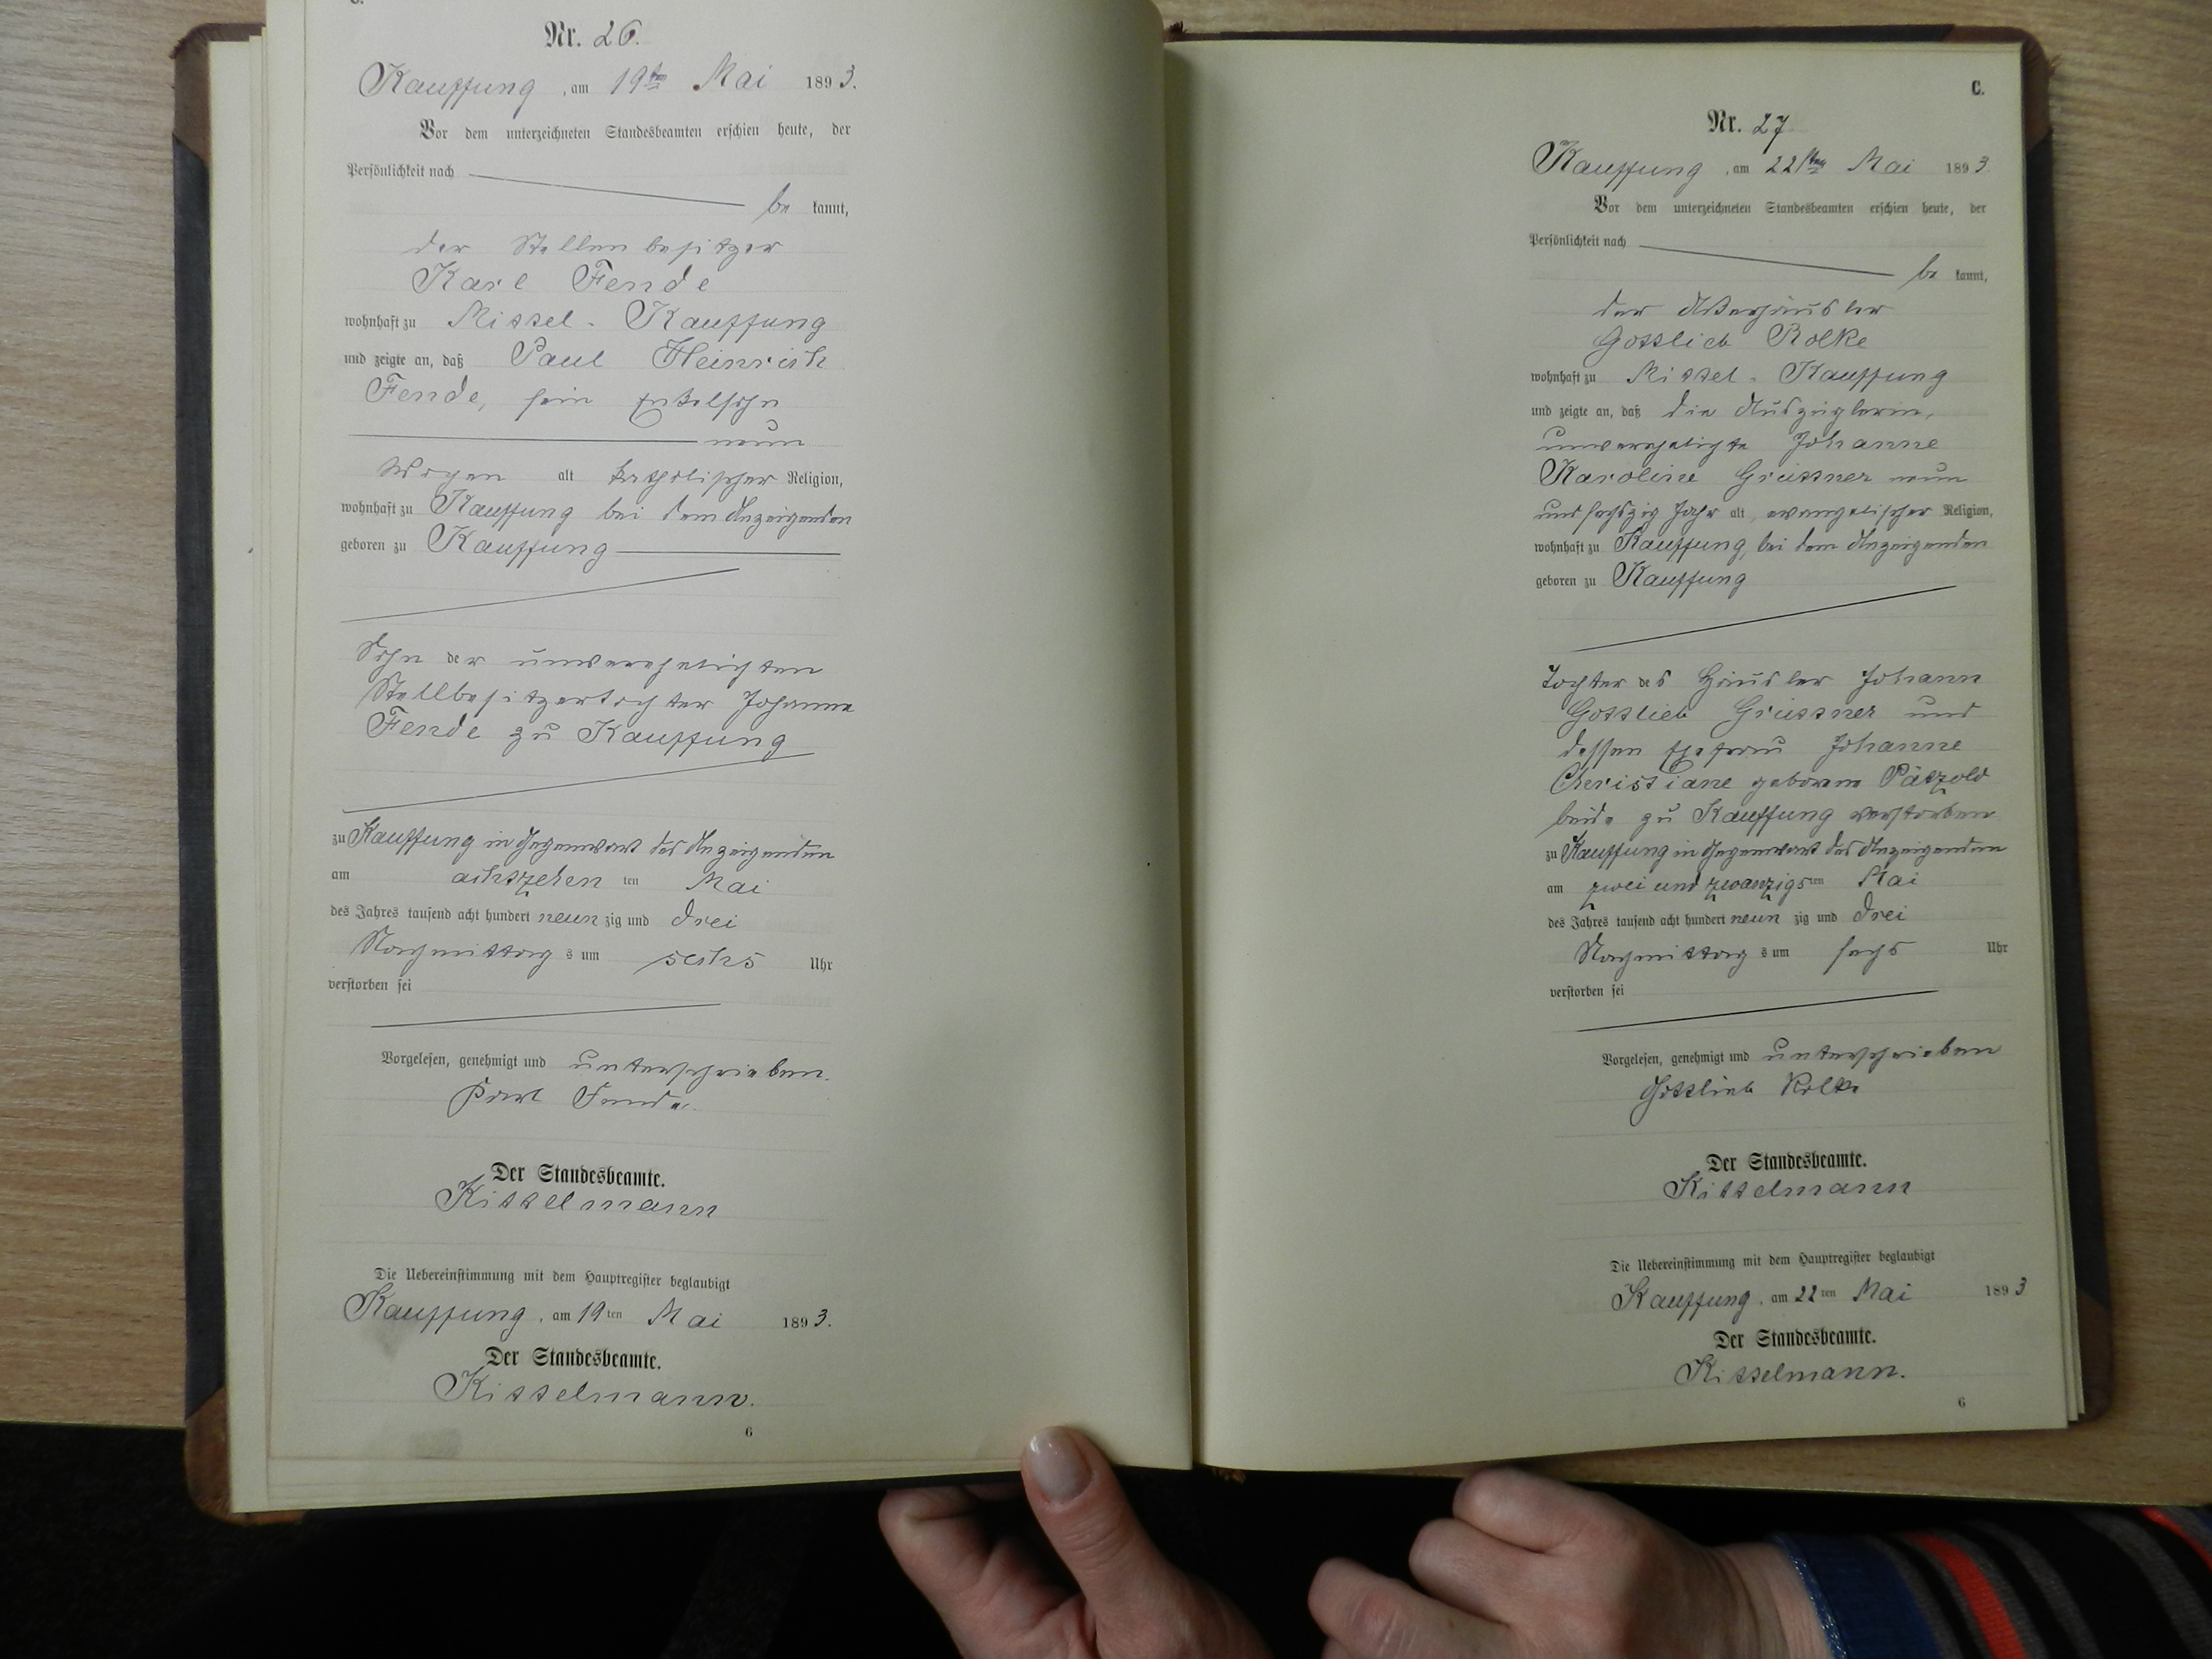 C.
Nr. 26.
Kauffung, am 19ten Mai 1893.
Vor dem unterzeichneten Standesbeamten erschien heute, der
Persönlichkeit nach
be kannt,
der Stellenbesitzer
Karl Fende
wohnhaft zu Mittel-Kauffung
und zeigte an, daß Paul Heinrich
Fende, sein Enkelsohn
neun
Wochen alt katholischer Religion,
wohnhaft zu Kauffung bei dem Anzeigenden
geboren zu Kauffung
Sohn der unverehelichten
Stellbesitzertochter Johanna
Fende zu Kauffung
zu Kauffung in Gegenwart des Anzeigenden
am achtzehen ten Mai
des Jahres tausend acht hundert neun zig und drei
Nachmittag s um sechs Uhr
verstorben sei
Vorgelesen, genehmigt und unterschrieben.
Karl Fende.
Der Standesbeamte.
Kittelmann
Die Uebereinstimmung mit dem Hauptregister beglaubigt
Kauffung, am 19ten Mai 1893.
Der Standesbeamte.
Kittelmann.
6
C.
Nr. 27
Kauffung, am 22sten Mai 1893
Vor dem unterzeichneten Standesbeamten erschien heute, der
Persönlichkeit nach
be kannt,
der
Gottlieb Rolke
wohnhaft zu Mittel-Kauffung
und zeigte an, daß die Auszüglerin,
unverehelichte Johanne
Karoline Grüttner neun
und sechszig Jahr alt, evangelischer Religion,
wohnhaft zu Kauffung bei dem Anzeigenden
geboren zu Kauffung
Tochter des Häusler Johann
Gottlieb Grüttner und
dessen Ehefrau Johanne
Christiane geborene Pätzold
beide zu Kauffung verstorben
zu Kauffung in Gegenwart des Anzeigenden
am zwei und zwanzigsten Mai
des Jahres tausend acht hundert neun zig und drei
Nachmittag s um sechs Uhr
verstorben sei
Vorgelesen, genehmigt und unterschrieben
Gottlieb Rolke
Der Standesbeamte.
Kittelmann
Die Uebereinstimmung mit dem Hauptregister beglaubigt
Kauffung, am 22ten Mai 1893
Der Standesbeamte.
Kittelmann.
6